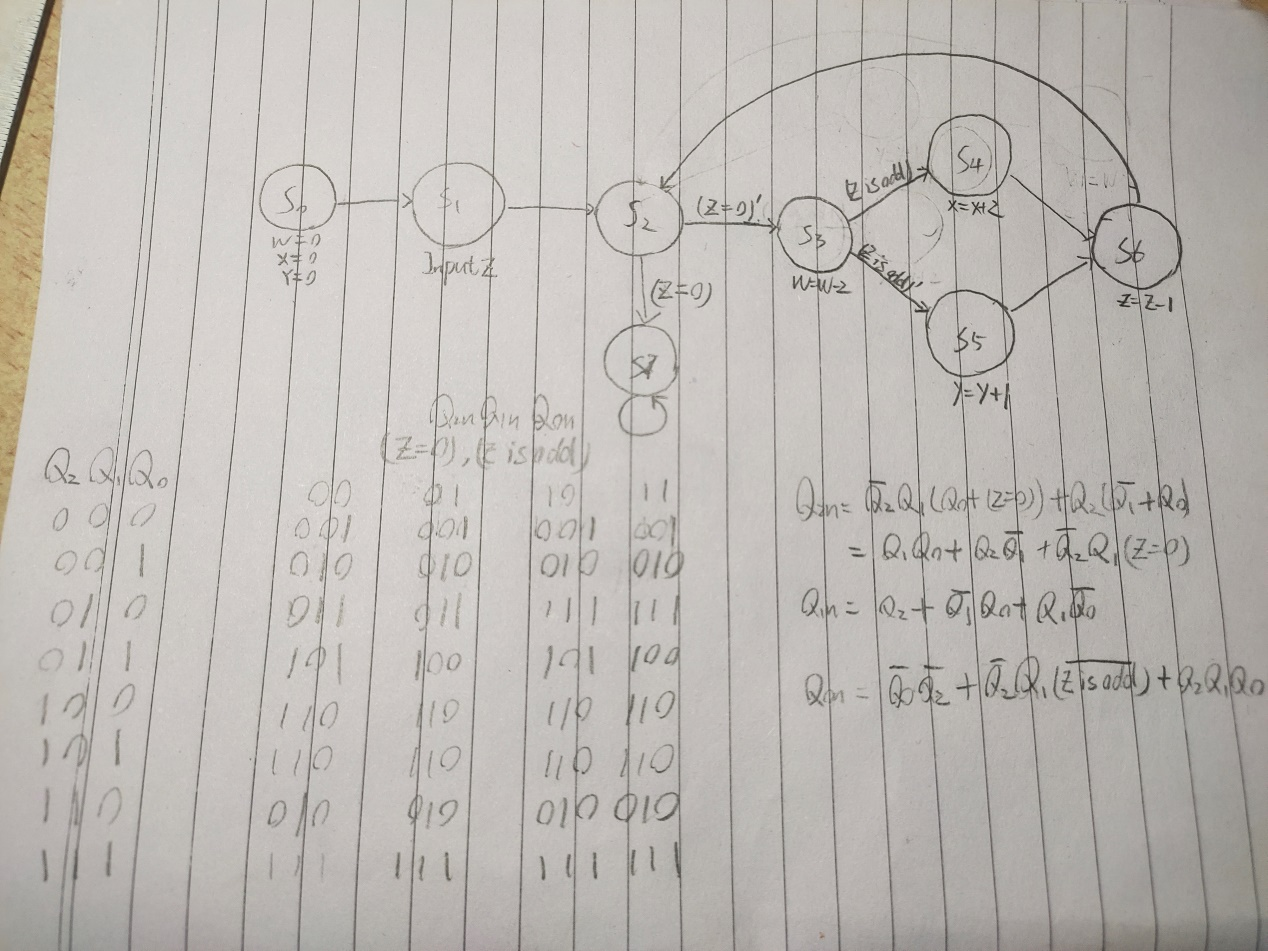 S0
W=0
X=0
Y=0
S1
Input Z
S2
(Z=0)'
(Z=0)
S7
S3
W=W-2
(Z is odd)
(Z is odd)'
S4
X=X+2
S5
Y=Y+1
S6
Z=Z-1
Q2n Q1n Q0n
(Z=0), (Z is odd)
Q2 Q1 Q0
00 01 10 11
0 0 0 001 001 001 001
0 0 1 010 010 010 010
0 1 0 011 011 111 111
0 1 1 101 100 101 100
1 0 0 110 110 110 110
1 0 1 110 110 110 110
1 1 0 010 010 010 010
1 1 1 111 111 111 111
Q2n = Q̅2 Q1 (Q0 + (Z=0)) + Q2 (Q̅1 + Q0)
= Q1 Q0 + Q2 Q̅1 + Q̅2 Q1 (Z=0)
Q1n = Q2 + Q̅1 Q0 + Q1 Q̅0
Q0n = Q̅0 Q̅2 + Q̅2 Q1 (Z̅ ̅i̅s̅ ̅o̅d̅d̅) + Q2 Q1 Q0